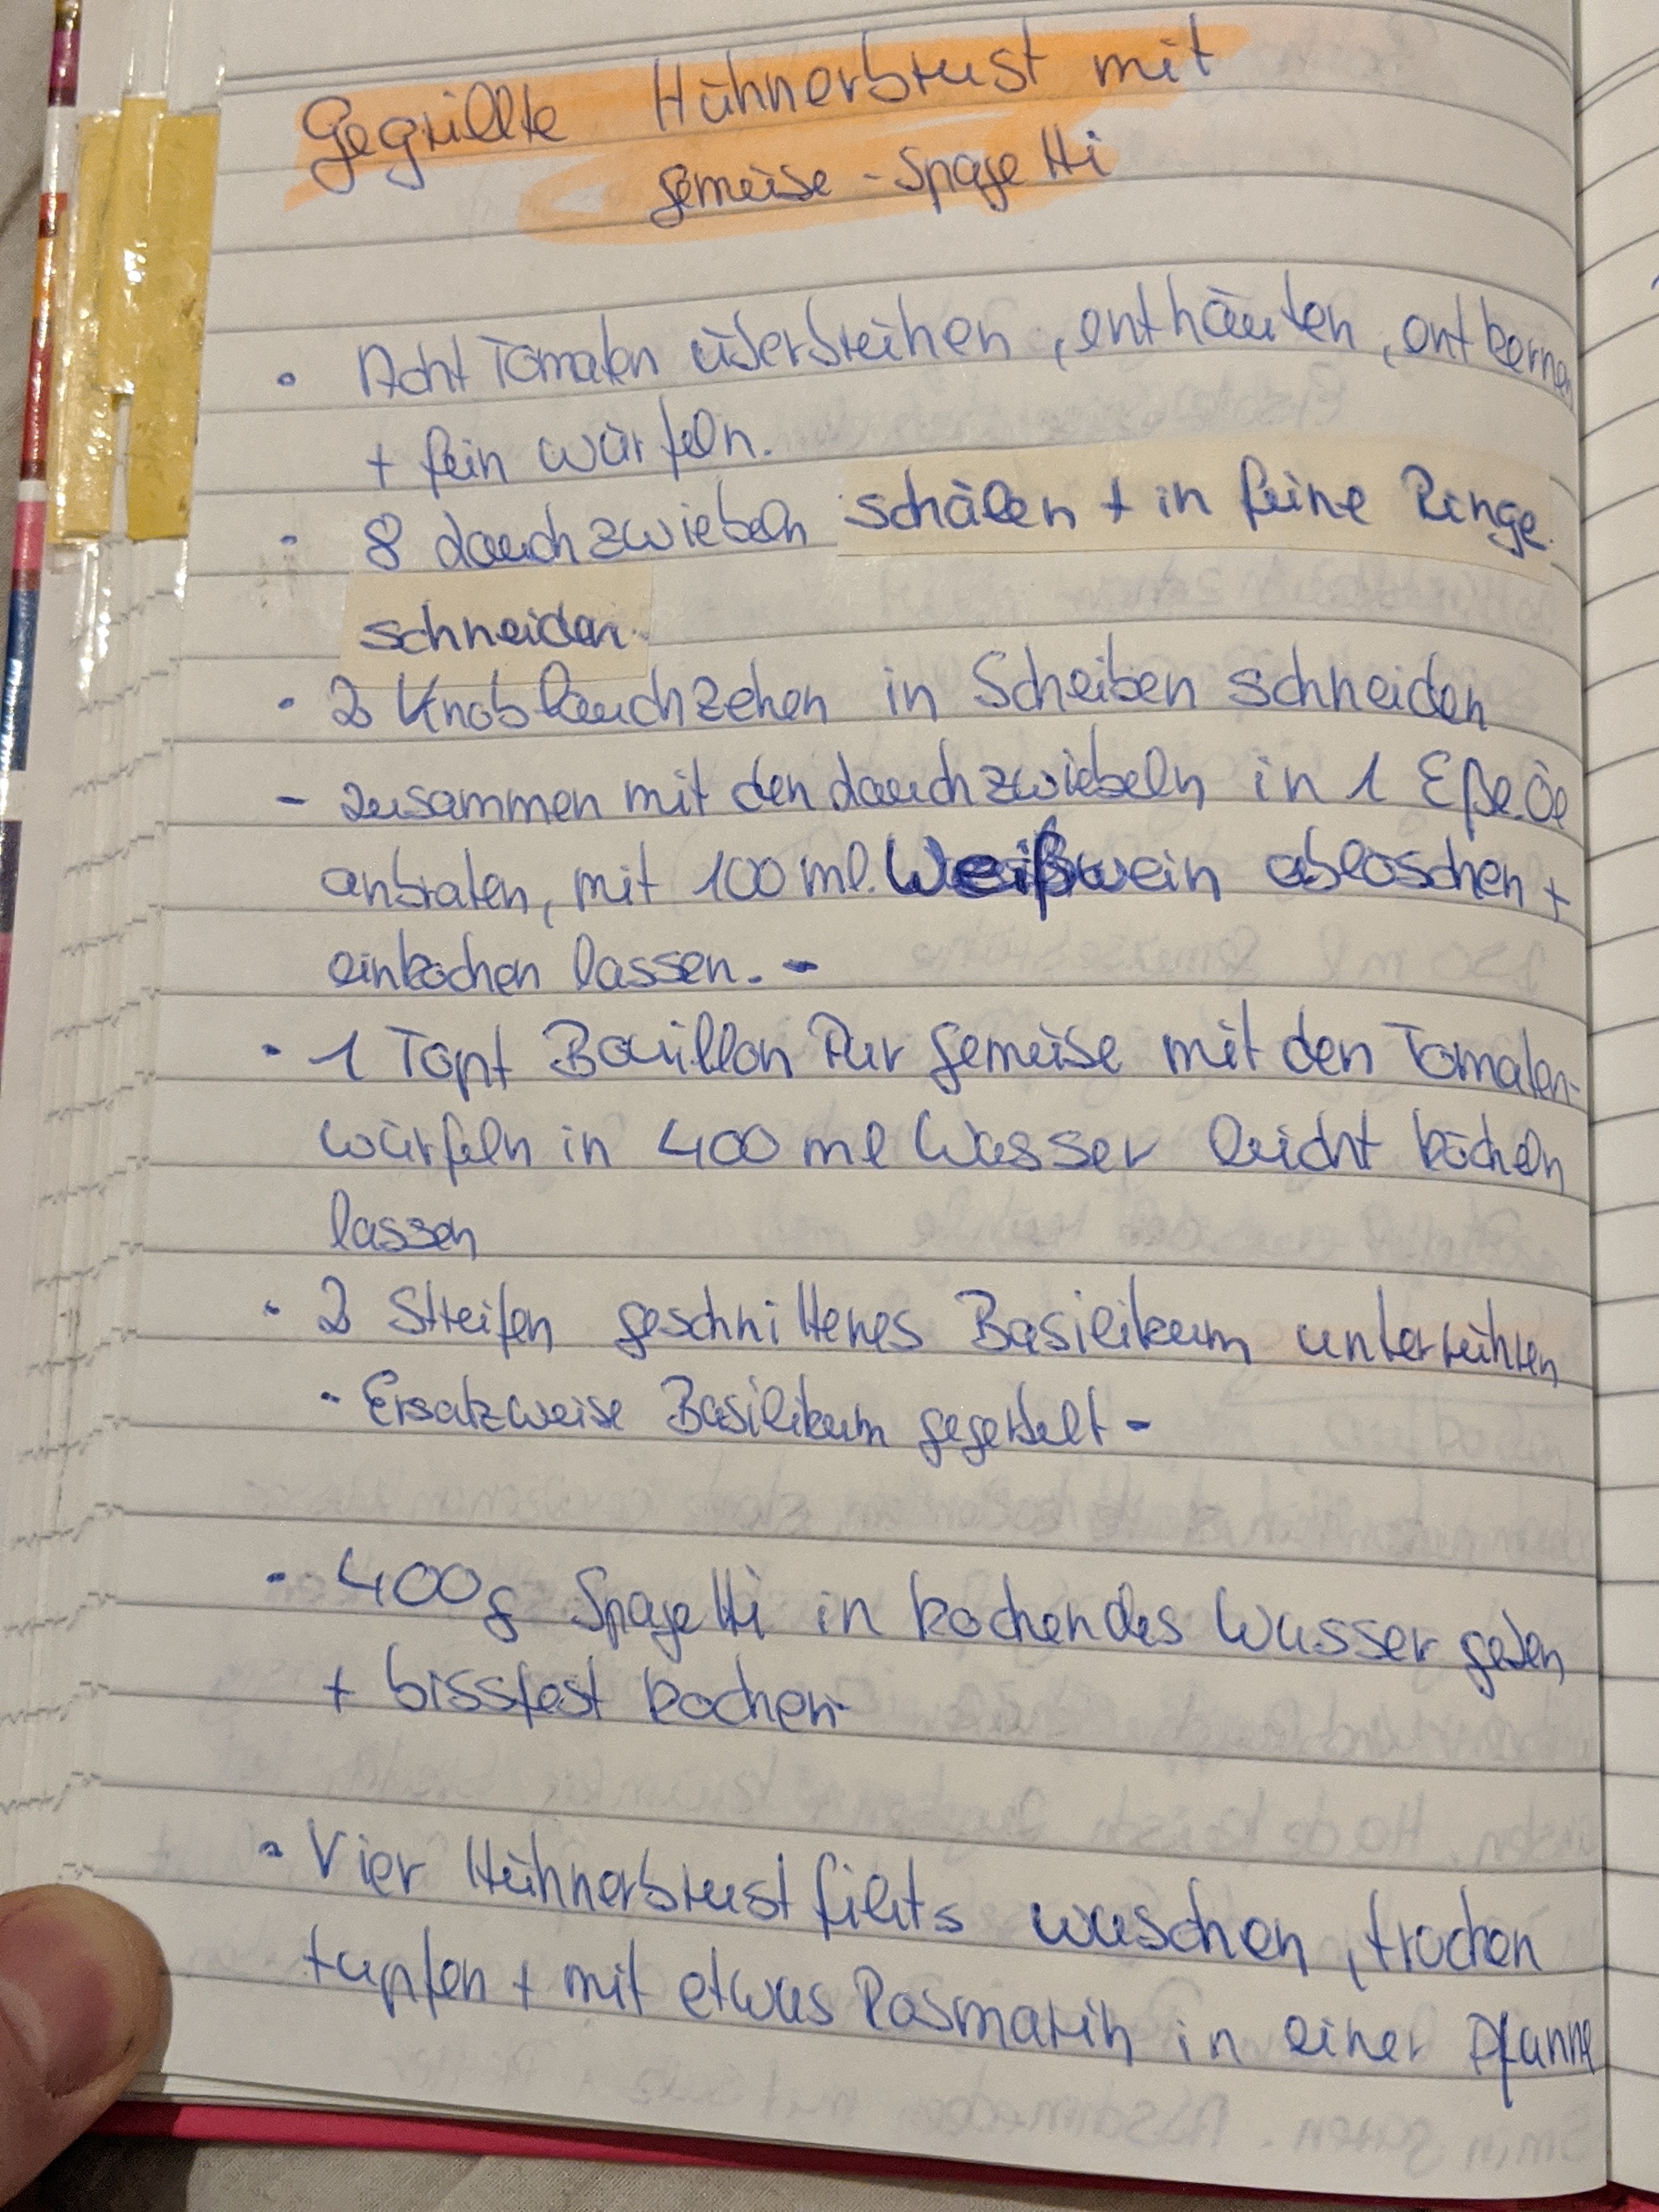 Gegrillte Hühnerbrust mit
Gemüse-Spagetti
• Acht Tomaten überbrühen, enthäuten, entkernen
+ fein würfeln.
• 8 Lauchzwiebeln schälen + in feine Ringe
schneiden.
• 2 Knoblauchzehen in Scheiben schneiden
- zusammen mit den Lauchzwiebeln in 1 Eßl. Öl
anbraten, mit 100 ml. Weißwein ablöschen +
einkochen lassen. -
• 1 Topf Bouillon Pur Gemüse mit den Tomaten-
würfeln in 400 ml Wasser leicht köcheln
lassen
• 2 Streifen geschnittenes Basilikum unterrühren
- Ersatzweise Basilikum gegerbelt -
• 400g Spagetti in kochendes Wasser geben
+ bissfest kochen.
• Vier Hühnerbrustfilets waschen, trocken
tupfen + mit etwas Rosmarin in einer Pfanne